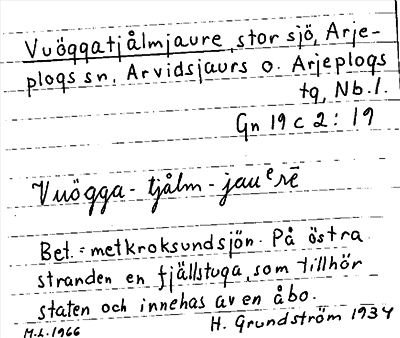 Vuöggatjålmjaure, stor sjö, Arje-
plogs sn, Arvidsjaurs o. Arjeplogs
tg, Nb.l.
Gn 19 c 2 : 19
Vuögga - tjålm - jauᵉrē
Bet. = metkroksundsjön. På östra
stranden en fjällstuga, som tillhör
staten och innehas av en åbo.
H. Grundström 1934
M.L. 1966